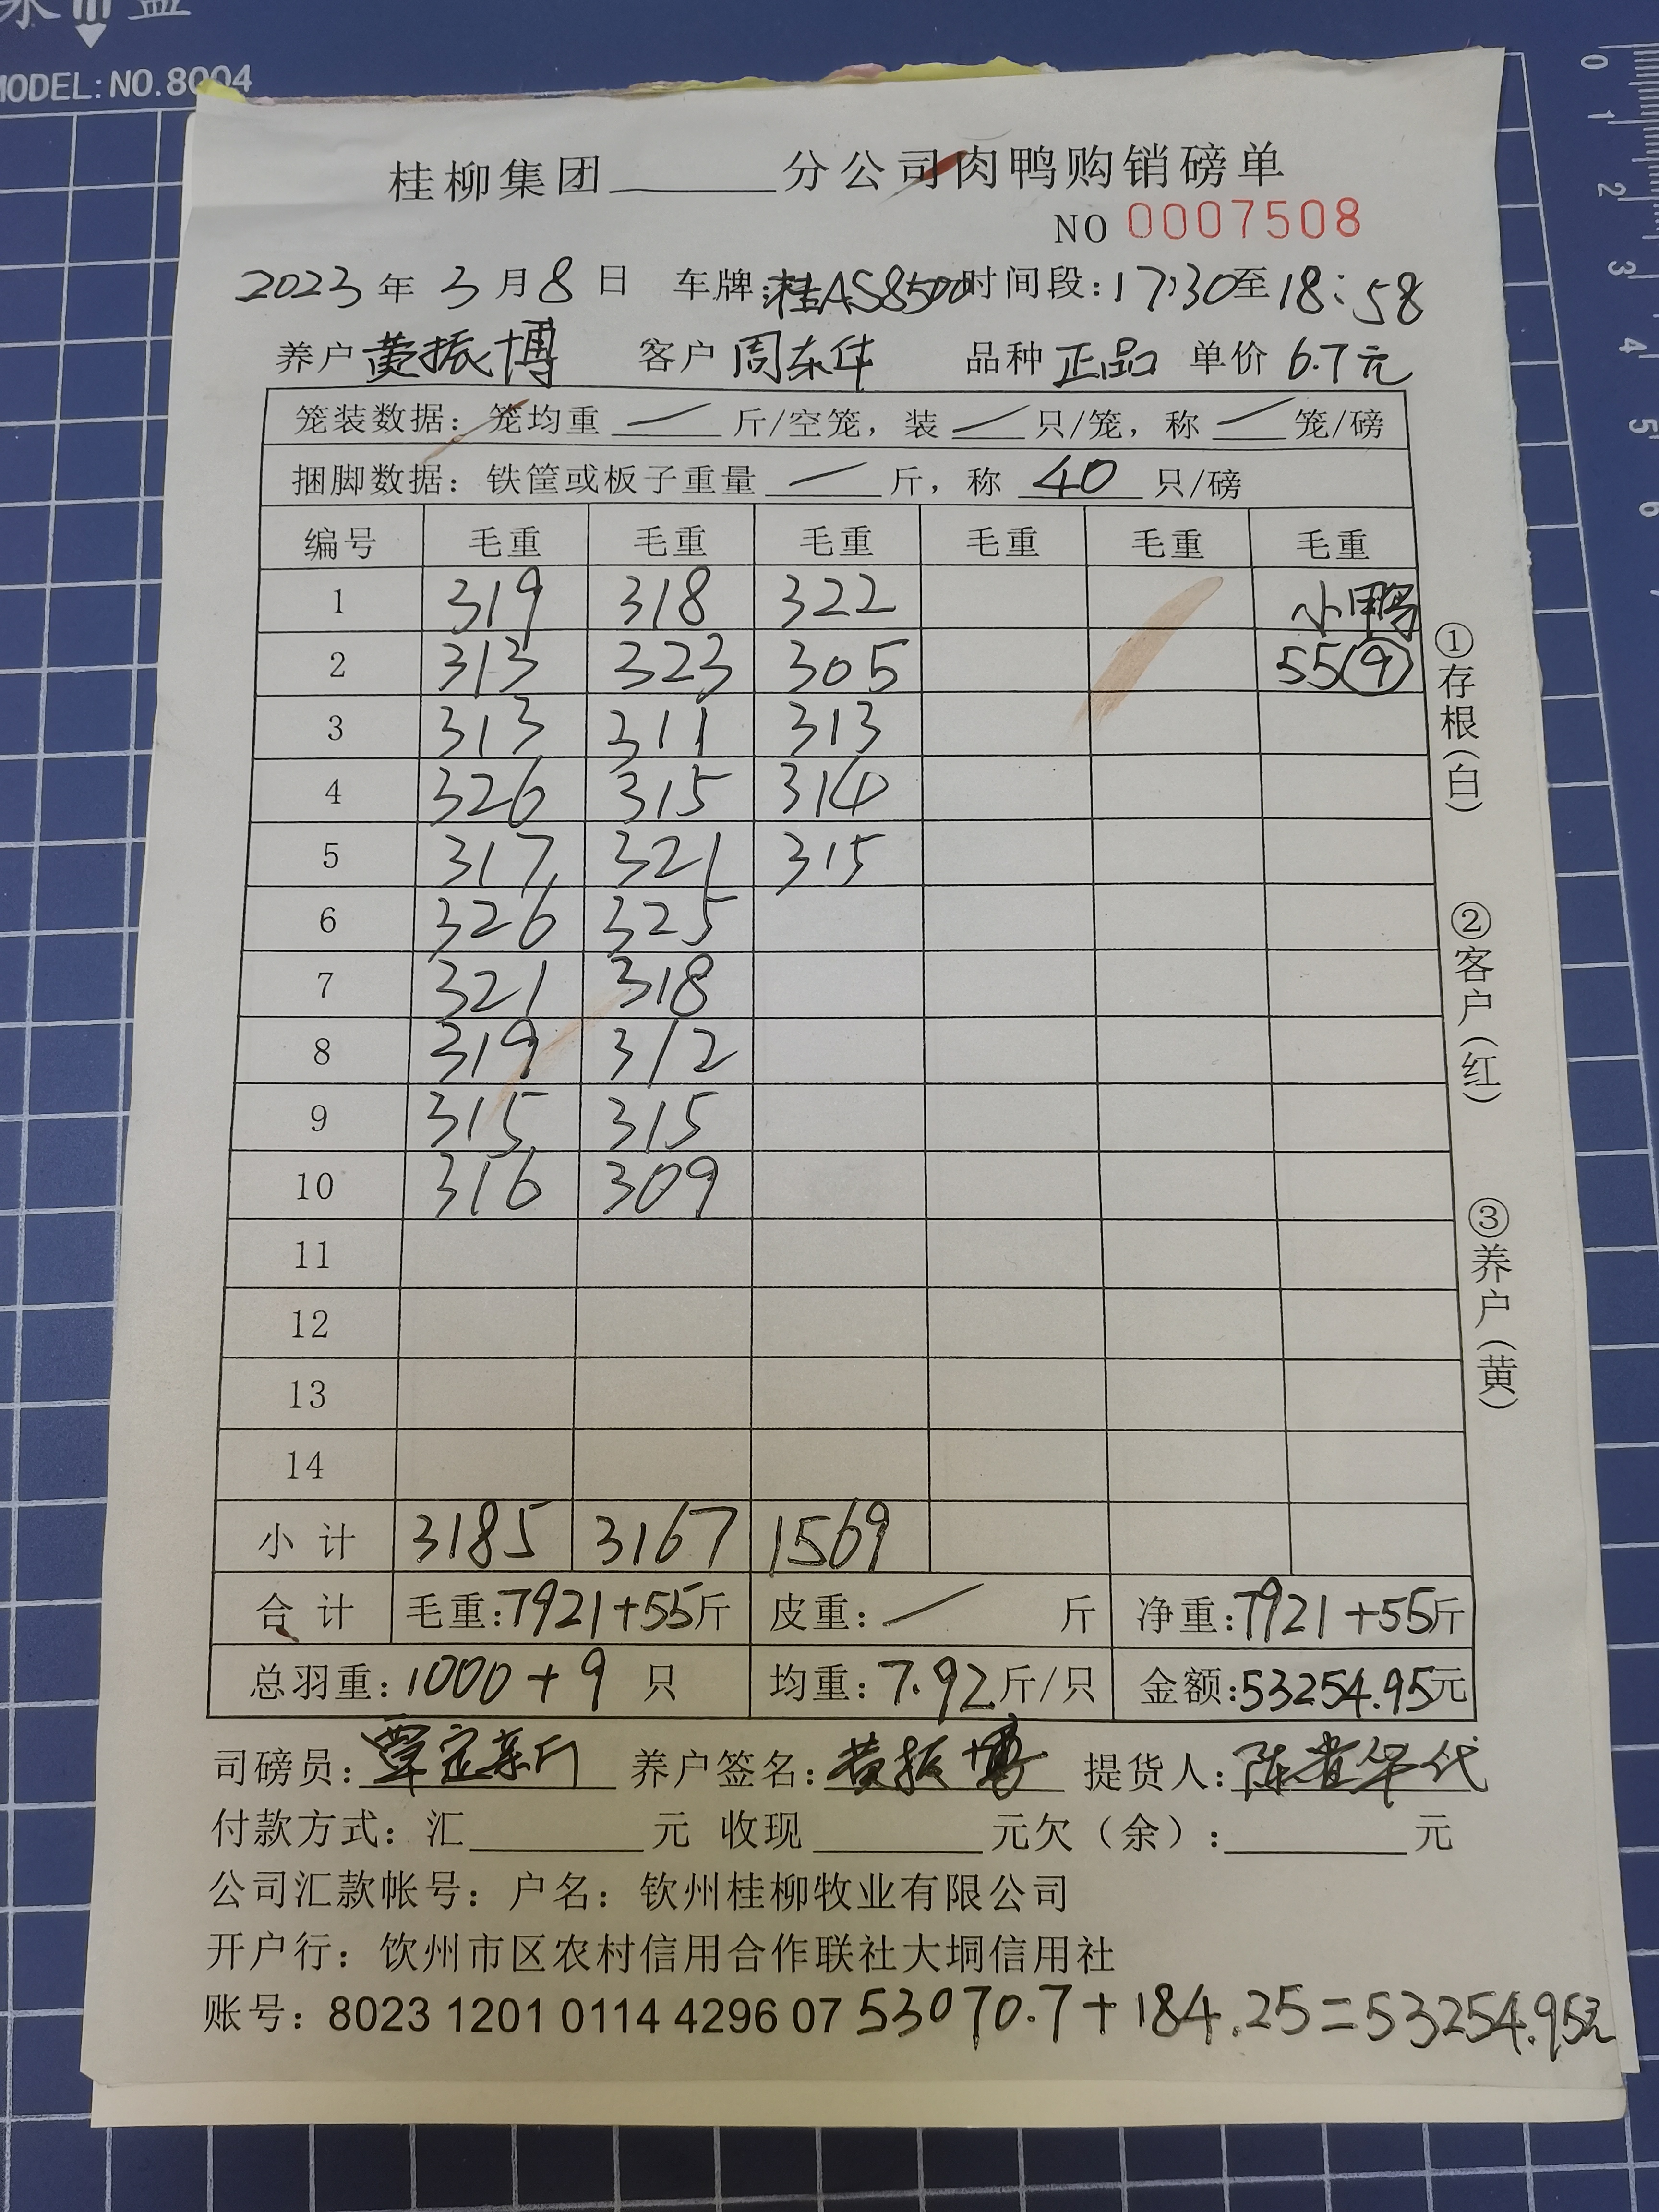 MODEL: NO.8004
桂柳集团________分公司肉鸭购销磅单
NO 0007508
2023年3月8日 车牌:桂AS8500 时间段:17:30至18:58
养户 黄振博 客户 周东华 品种 正品 单价 6.7元
笼装数据：笼均重 / 斤/空笼，装 / 只/笼，称 / 笼/磅
捆脚数据：铁筐或板子重量 / 斤，称 40 只/磅
编号 毛重 毛重 毛重 毛重 毛重 毛重
1 319 318 322 小鸭
2 313 323 305 55(9)
3 313 311 313
4 326 315 314
5 317 321 315
6 326 325
7 321 318
8 319 312
9 315 315
10 316 309
11
12
13
14
小计 3185 3167 1569
合计 毛重:7921+55斤 皮重: / 斤 净重:7921+55斤
总羽重:1000+9 只 均重:7.92斤/只 金额:53254.95元
司磅员: 养户签名:黄振博 提货人:
付款方式：汇________元 收现________元欠（余）:________元
公司汇款帐号：户名：钦州桂柳牧业有限公司
开户行：钦州市区农村信用合作联社大垌信用社
账号：8023 1201 0114 4296 07 53070.7+184.25=53254.95元
①存根(白)
②客户(红)
③养户(黄)
0
1
2
3
4
5
6